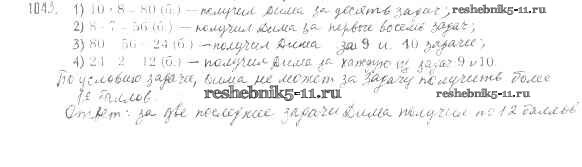 1043. 1) 10 · 8 = 80 (б.) – получил Дима за десять задач;
reshebnik5-11.ru
2) 8 · 7 = 56 (б.) – получил Дима за первые восемь задач;
3) 80 – 56 = 24 (б.) – получил Дима за 9 и 10 задачи;
4) 24 : 2 = 12 (б.) – получил Дима за каждую из задач 9 и 10.
По условию задачи, Дима не может за задачу получить более
баллов.
reshebnik5-11.ru
reshebnik5-11.ru
Ответ: за две последние задачи Дима получил по 12 баллов